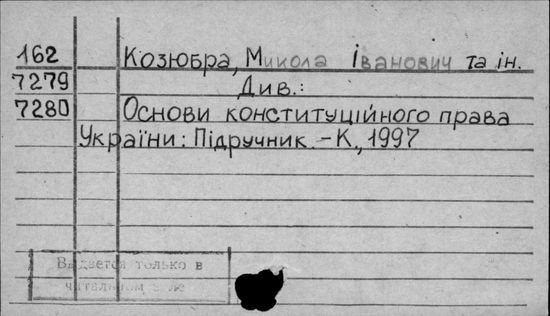 162 Козюбра, Микола Іванович та ін.
7279 Див.:
7280 Основи конституційного права
України: Підручник. – К., 1997
Выдается только в
читальном зале